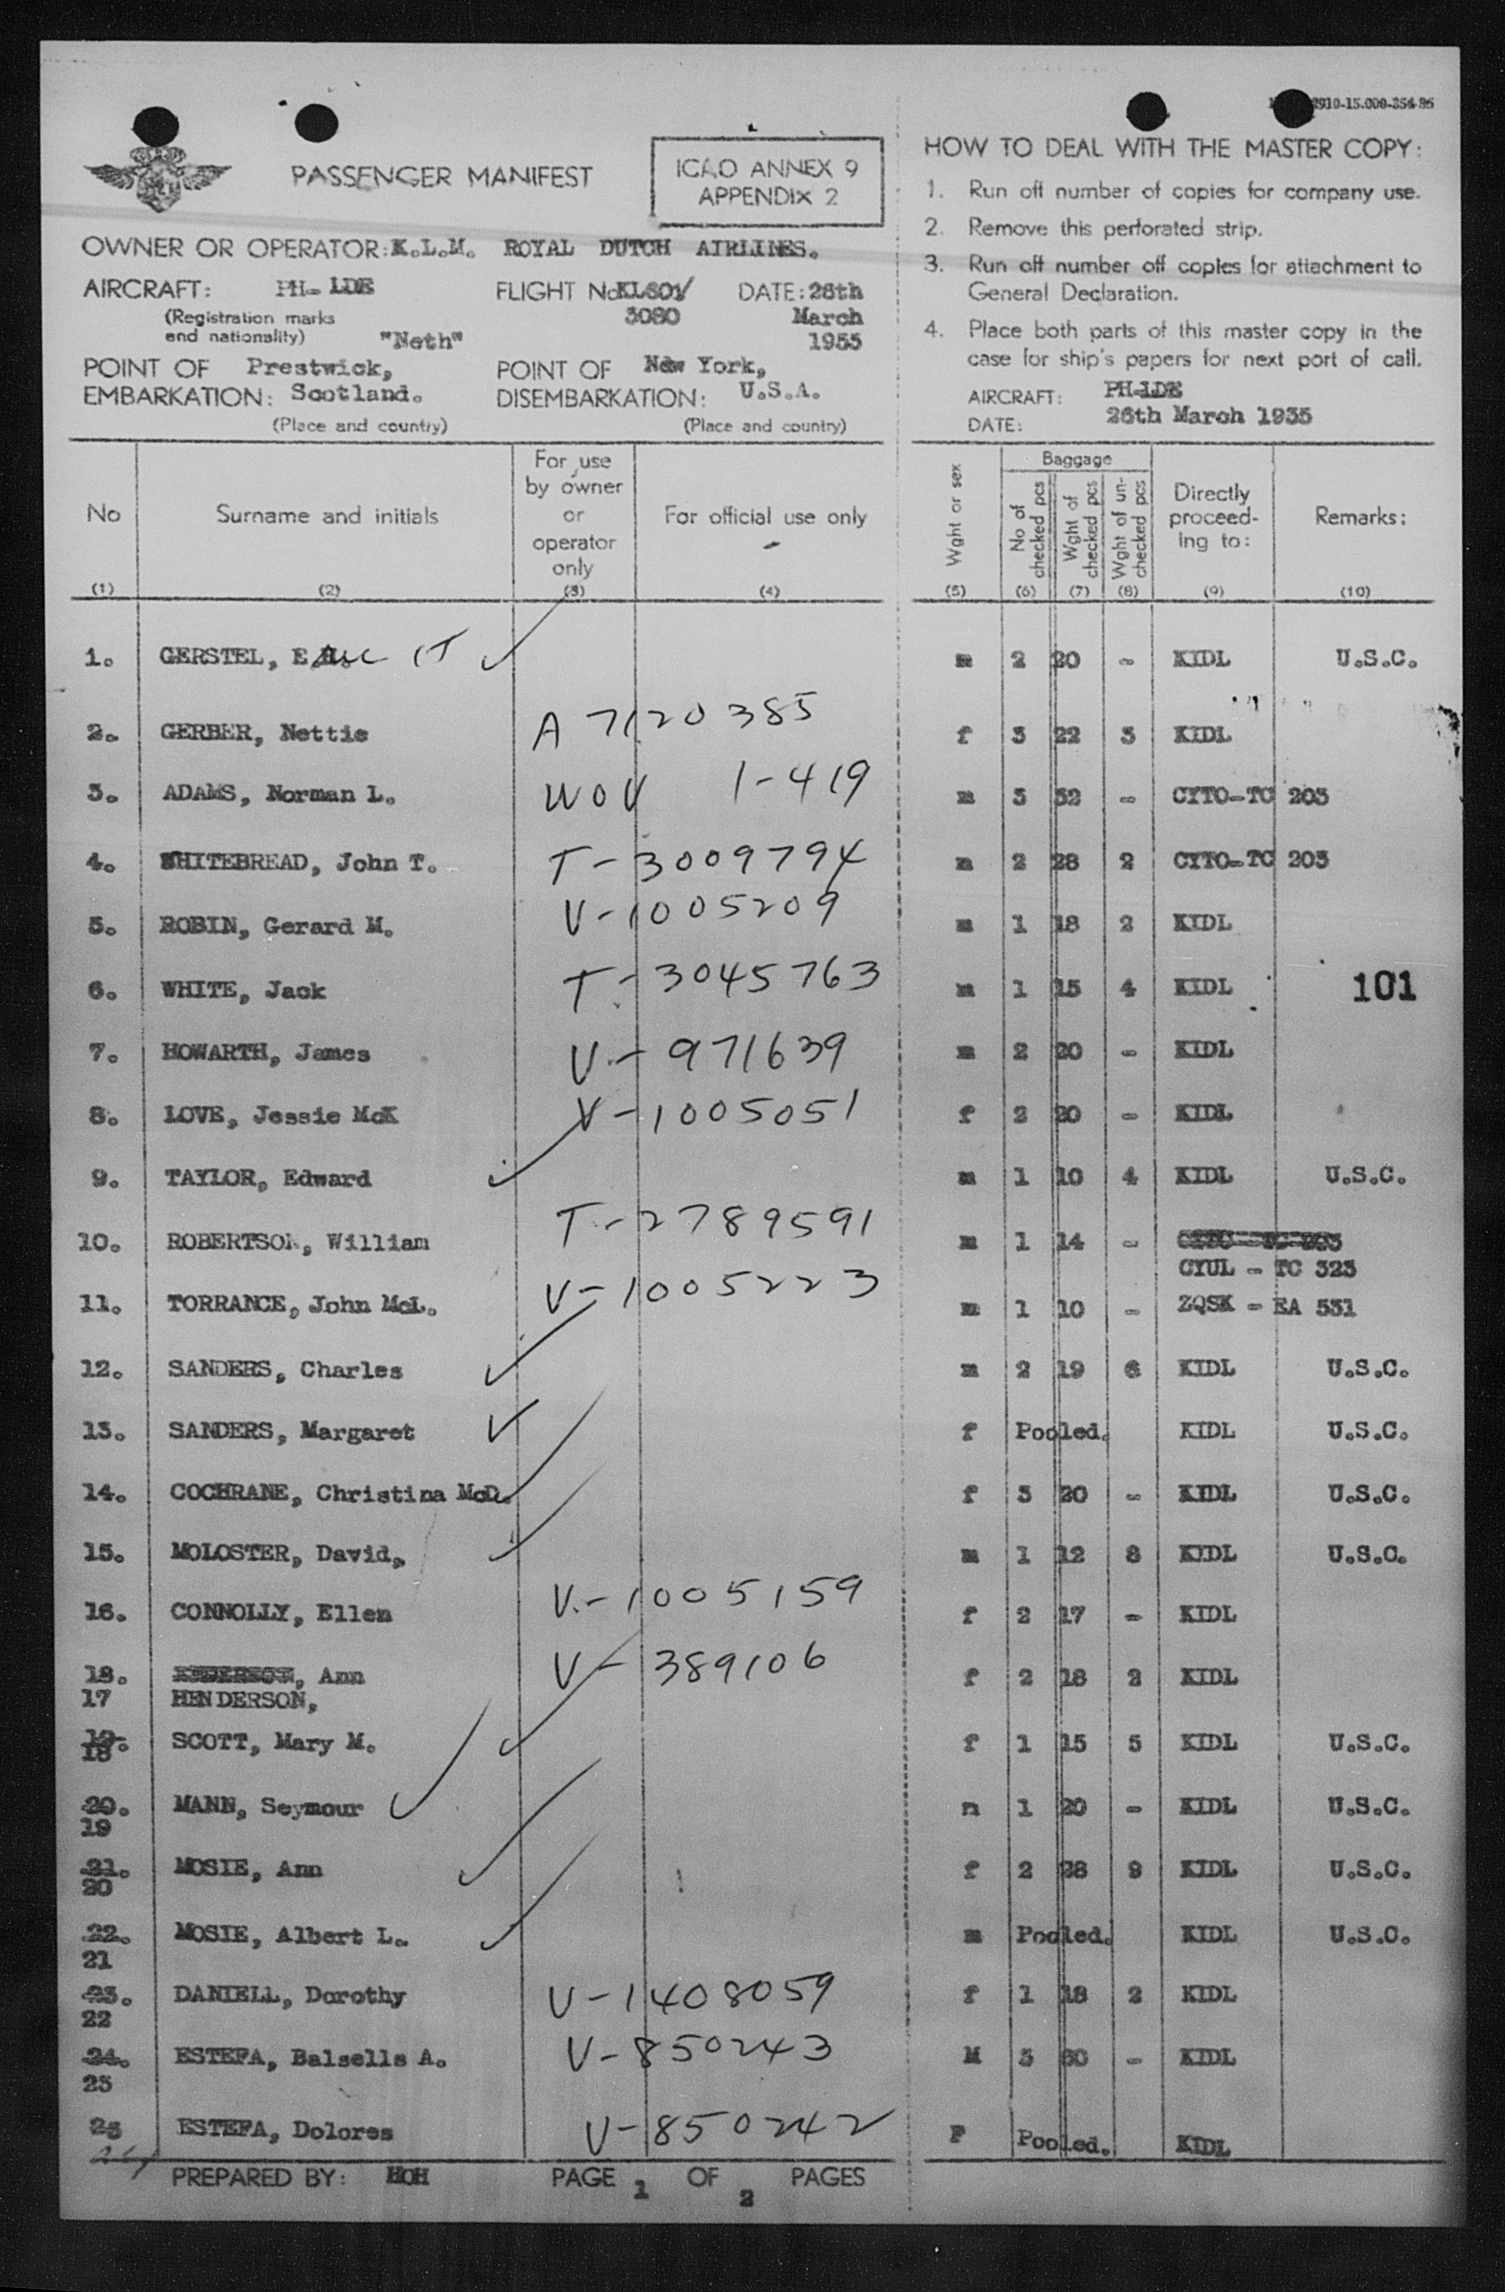 2910-15.000-354-86
PASSENGER MANIFEST
ICAO ANNEX 9
APPENDIX 2
OWNER OR OPERATOR: K.L.M. ROYAL DUTCH AIRLINES.
AIRCRAFT: PH-LDE FLIGHT No KL601/ DATE: 26th
(Registration marks 3080 March
and nationality) "Neth" 1955
POINT OF Prestwick, POINT OF New York,
EMBARKATION: Scotland. DISEMBARKATION: U.S.A.
(Place and country) (Place and country)
HOW TO DEAL WITH THE MASTER COPY:
1. Run off number of copies for company use.
2. Remove this perforated strip.
3. Run off number off copies for attachment to
General Declaration.
4. Place both parts of this master copy in the
case for ship's papers for next port of call.
AIRCRAFT: PH-LDE
DATE: 26th March 1955
No Surname and initials For use by owner or operator only For official use only Wght or sex Baggage No of checked pcs Wght of checked pcs Wght of un-checked pcs Directly proceed-ing to: Remarks:
(1) (2) (3) (4) (5) (6) (7) (8) (9) (10)
1. GERSTEL, E m 2 20 - KIDL U.S.C.
2. GERBER, Nettie A 7120385 f 3 22 3 KIDL
3. ADAMS, Norman L. WOV 1-419 m 3 32 - CYTO-TC 203
4. WHITEBREAD, John T. T-3009794 m 2 28 2 CYTO-TC 203
5. ROBIN, Gerard M. V-1005209 m 1 18 2 KIDL
6. WHITE, Jack T-3045763 m 1 15 4 KIDL 101
7. HOWARTH, James V-971639 m 2 20 - KIDL
8. LOVE, Jessie McK V-1005051 f 2 20 - KIDL
9. TAYLOR, Edward m 1 10 4 KIDL U.S.C.
10. ROBERTSON, William T-2789591 m 1 14 -
CYUL - TC 323
11. TORRANCE, John McL. V-1005223 m 1 10 - ZQSK - EA 531
12. SANDERS, Charles m 2 19 6 KIDL U.S.C.
13. SANDERS, Margaret f Pooled. KIDL U.S.C.
14. COCHRANE, Christina McD. f 3 20 - KIDL U.S.C.
15. MOLOSTER, David, m 1 12 8 KIDL U.S.C.
16. CONNOLLY, Ellen V-1005159 f 2 17 - KIDL
18. , Ann V-389106 f 2 18 2 KIDL
17 HENDERSON,
19. SCOTT, Mary M. f 1 15 5 KIDL U.S.C.
18
20. MANN, Seymour m 1 20 - KIDL U.S.C.
19
21. MOSIE, Ann f 2 28 9 KIDL U.S.C.
20
22. MOSIE, Albert L. m Pooled. KIDL U.S.C.
21
23. DANIELL, Dorothy V-1408059 f 1 18 2 KIDL
22
24. ESTEFA, Balsells A. V-850243 M 3 60 - KIDL
23
25 ESTEFA, Dolores V-850242 F Pooled. KIDL
24
PREPARED BY: HOH PAGE 1 OF 2 PAGES